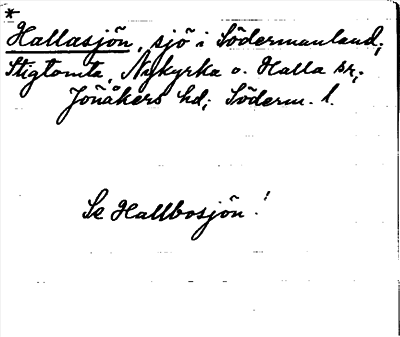 *
Hallasjön, sjö i Södermanland;
Stigtomta, Nykyrka o. Halla sr;
Jönåkers hd; Söderm. l.
Se Hallbosjön!